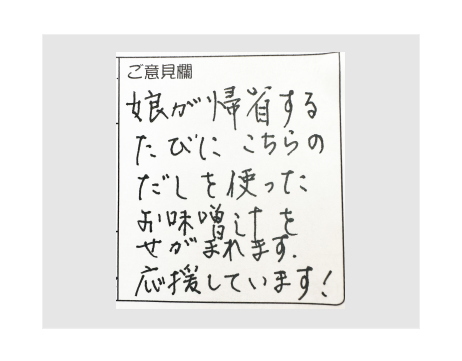 ご意見欄
娘が帰省する
たびに こちらの
だしを使った
お味噌汁を
せがまれます.
応援しています!